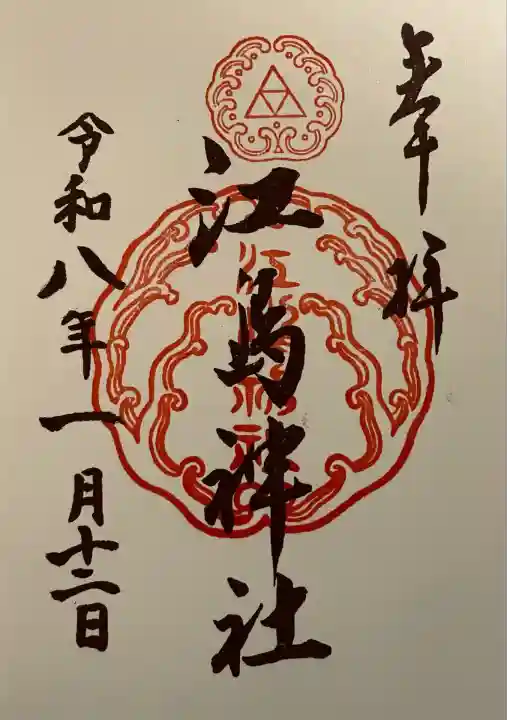 奉拝
江島神社
江島神社
令和八年一月十二日